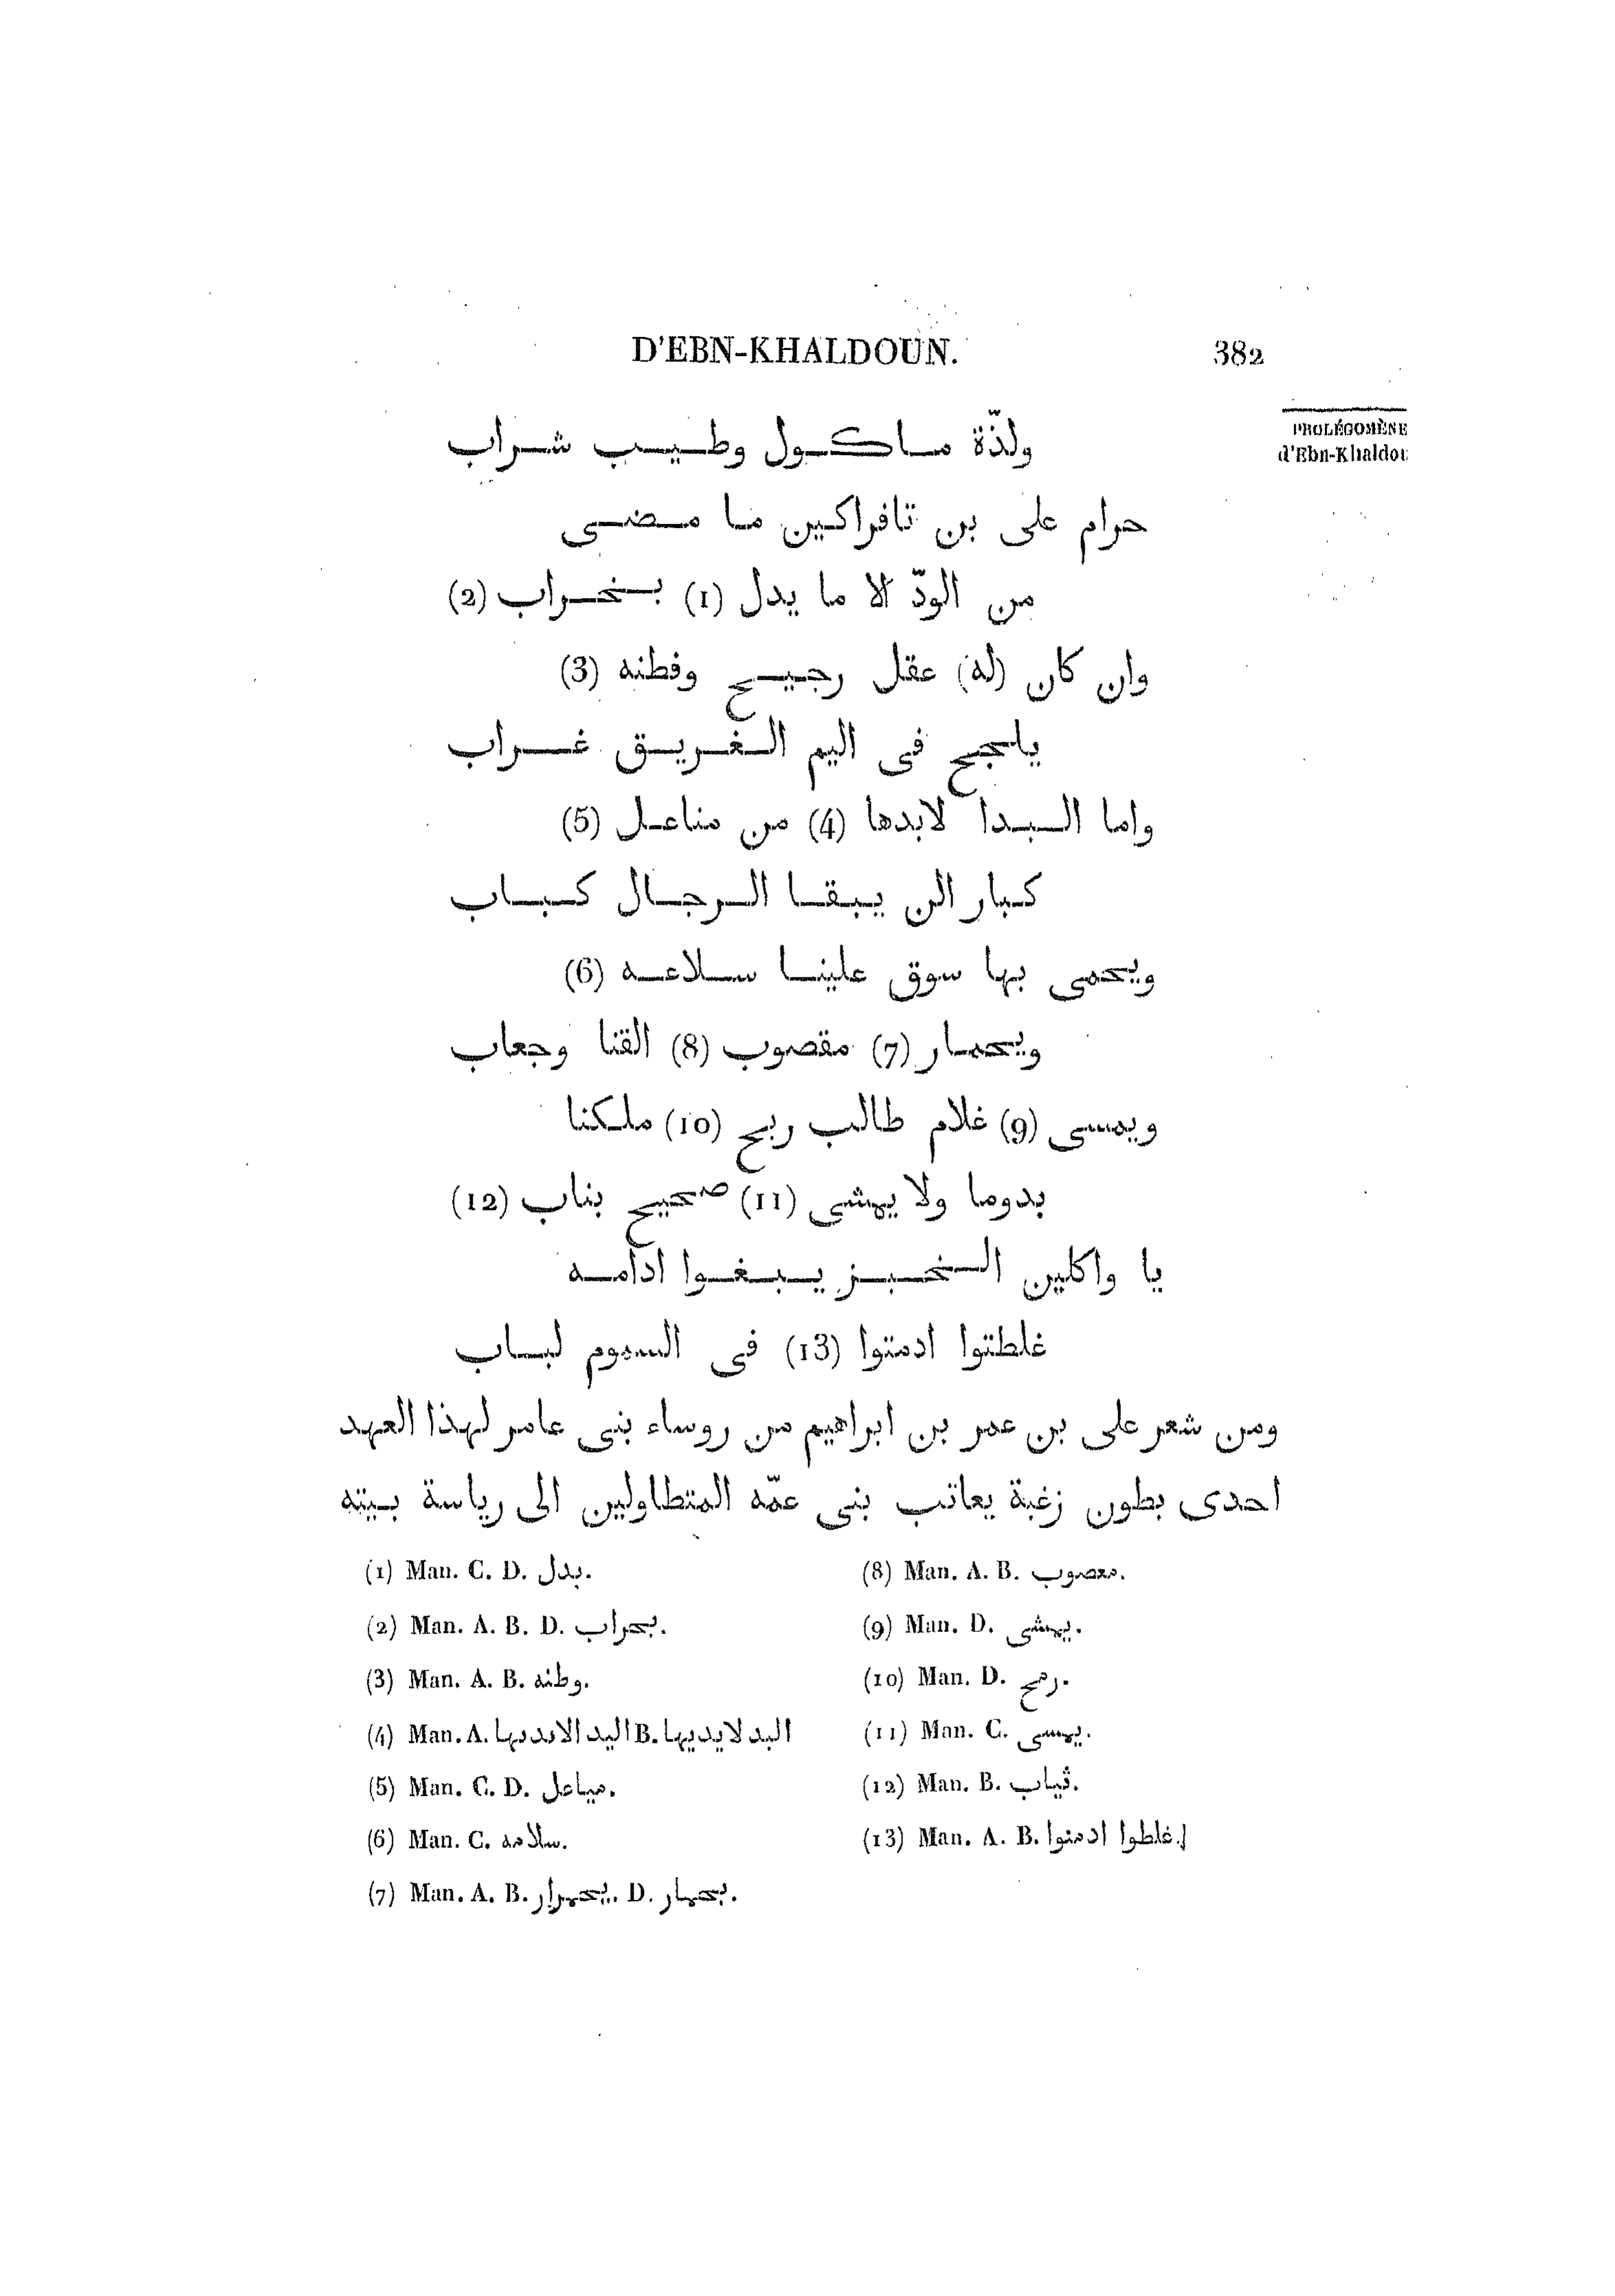 D'EBN-KHALDOUN. 382
PROLÉGOMÈNE
d'Ebn-Khaldou
ولذّة ماكول وطيب شراب
حرام على بن تافراكين ما مضى
من الودّ الا ما يدل (1) بخراب (2)
وان كان (له) عقل رجيح وفطنه (3)
يلجج فى اليم الغريق غراب
واما البدا لابدها (4) من مناعل (5)
كبار الن يبقا الرجال كباب
ويحمى بها سوق علينا سلاعه (6)
ويحمار (7) مقصوب (8) القنا وجعاب
ويمسى (9) غلام طالب ربح (10) ملكنا
بدوما ولا يمشى (11) صحيح بناب (12)
يا واكلين الخبز يبغوا ادامه
غلطتوا ادمتوا (13) فى السموم لباب
ومن شعر على بن عمر بن ابراهيم من روساء بنى عامر لهذا العهد
احدى بطون زغبة يعاتب بنى عمّه المتطاولين الى رياسة بيته
(1) Man. C. D. بدل.
(2) Man. A. B. D. بحراب.
(3) Man. A. B. وطنه.
(4) Man. A. اليد الابديها B. البد لايديها
(5) Man. C. D. مياعل.
(6) Man. C. سلامه.
(7) Man. A. B. يحمرار. D. بحمار.
(8) Man. A. B. معصوب.
(9) Man. D. يمشى.
(10) Man. D. رمح.
(11) Man. C. يمسى.
(12) Man. B. ثياب.
(13) Man. A. B. غلطوا ادمنوا.